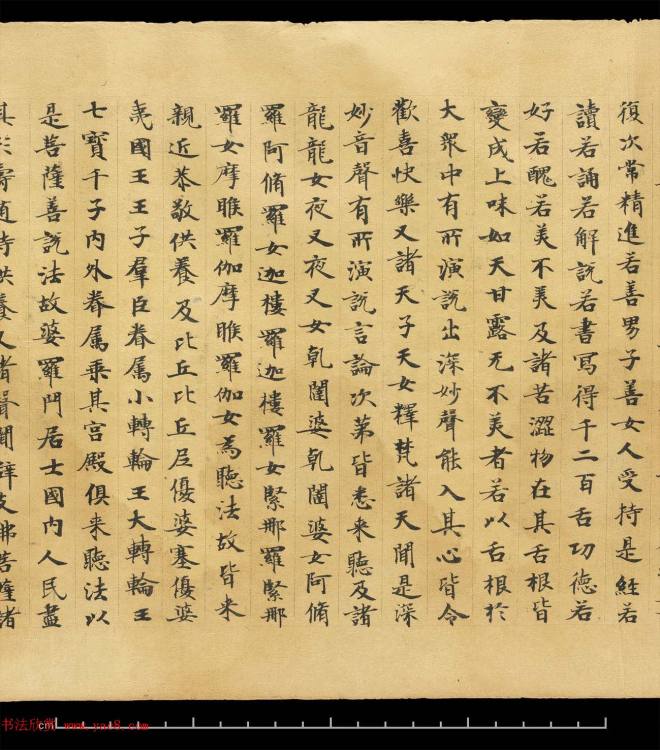 復次常精進若善男子善女人受持是經若
讀若誦若解說若書寫得千二百舌功德若
好若醜若美不美及諸苦澀物在其舌根皆
變成上味如天甘露无不美者若以舌根於
大眾中有所演說出深妙聲能入其心皆令
歡喜快樂又諸天子天女釋梵諸天聞是深
妙音聲有所演說言論次第皆悉来聽及諸
龍龍女夜叉夜叉女乹闥婆乹闥婆女阿脩
羅阿脩羅女迦樓羅迦樓羅女緊那羅緊那
羅女摩睺羅伽摩睺羅伽女為聽法故皆来
親近恭敬供養及比丘比丘尼優婆塞優婆
夷國王王子羣臣眷属小轉輪王大轉輪王
七寶千子内外眷属乘其宮殿俱来聽法以
是菩薩善說法故婆羅門居士國内人民盡
其形壽随侍供養又諸聲聞辟支佛菩薩諸
书法欣赏 www.yac8.com
cm